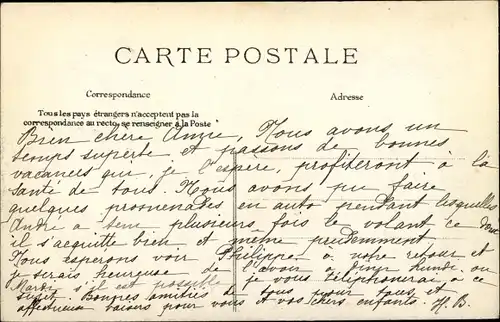 CARTE POSTALE
Correspondance
Adresse
Tous les pays étrangers n'acceptent pas la
correspondance au recto, se renseigner à la Poste
Bien chère Anne, Nous avons un
temps superbe et passons de bonnes
vacances qui, je l'espère, profiteront à la
santé de tous. Nous avons pu faire
quelques promenades en auto pendant lesquelles
André a tenu plusieurs fois le volant ce dont
il s'acquitte bien et même prudemment
Nous espérons voir Philippe à votre retour et
je serais heureuse de l'avoir à dîner lundi, ou
Mardi s'il est possible je vous téléphonerai à ce
sujet. Bonnes amitiés de tous pour tous, et
affectueux baisers pour vous et vos chers enfants. H. B.